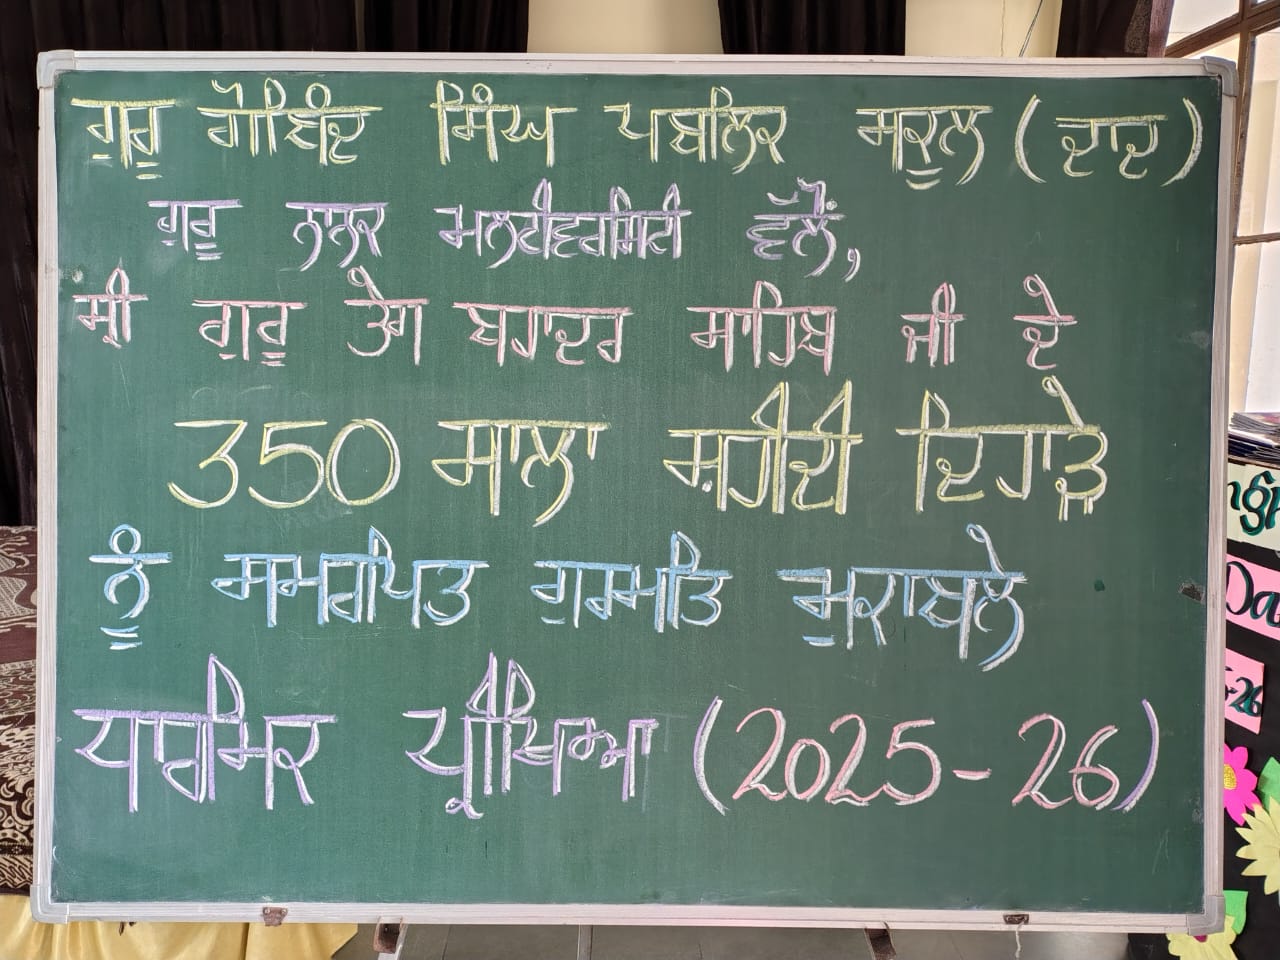 ਗੁਰੂ ਗੋਬਿੰਦ ਸਿੰਘ ਪਬਲਿਕ ਸਕੂਲ (ਦਾਦ)
ਗੁਰੂ ਨਾਨਕ ਮਲਟੀਵਰਸਿਟੀ ਵੱਲੋਂ,
ਸ੍ਰੀ ਗੁਰੂ ਤੇਗ ਬਹਾਦਰ ਸਾਹਿਬ ਜੀ ਦੇ
350 ਸਾਲਾ ਸ਼ਹੀਦੀ ਦਿਹਾੜੇ
ਨੂੰ ਸਮਰਪਿਤ ਗੁਰਮਤਿ ਮੁਕਾਬਲੇ
ਧਾਰਮਿਕ ਪ੍ਰੀਖਿਆ (2025-26)